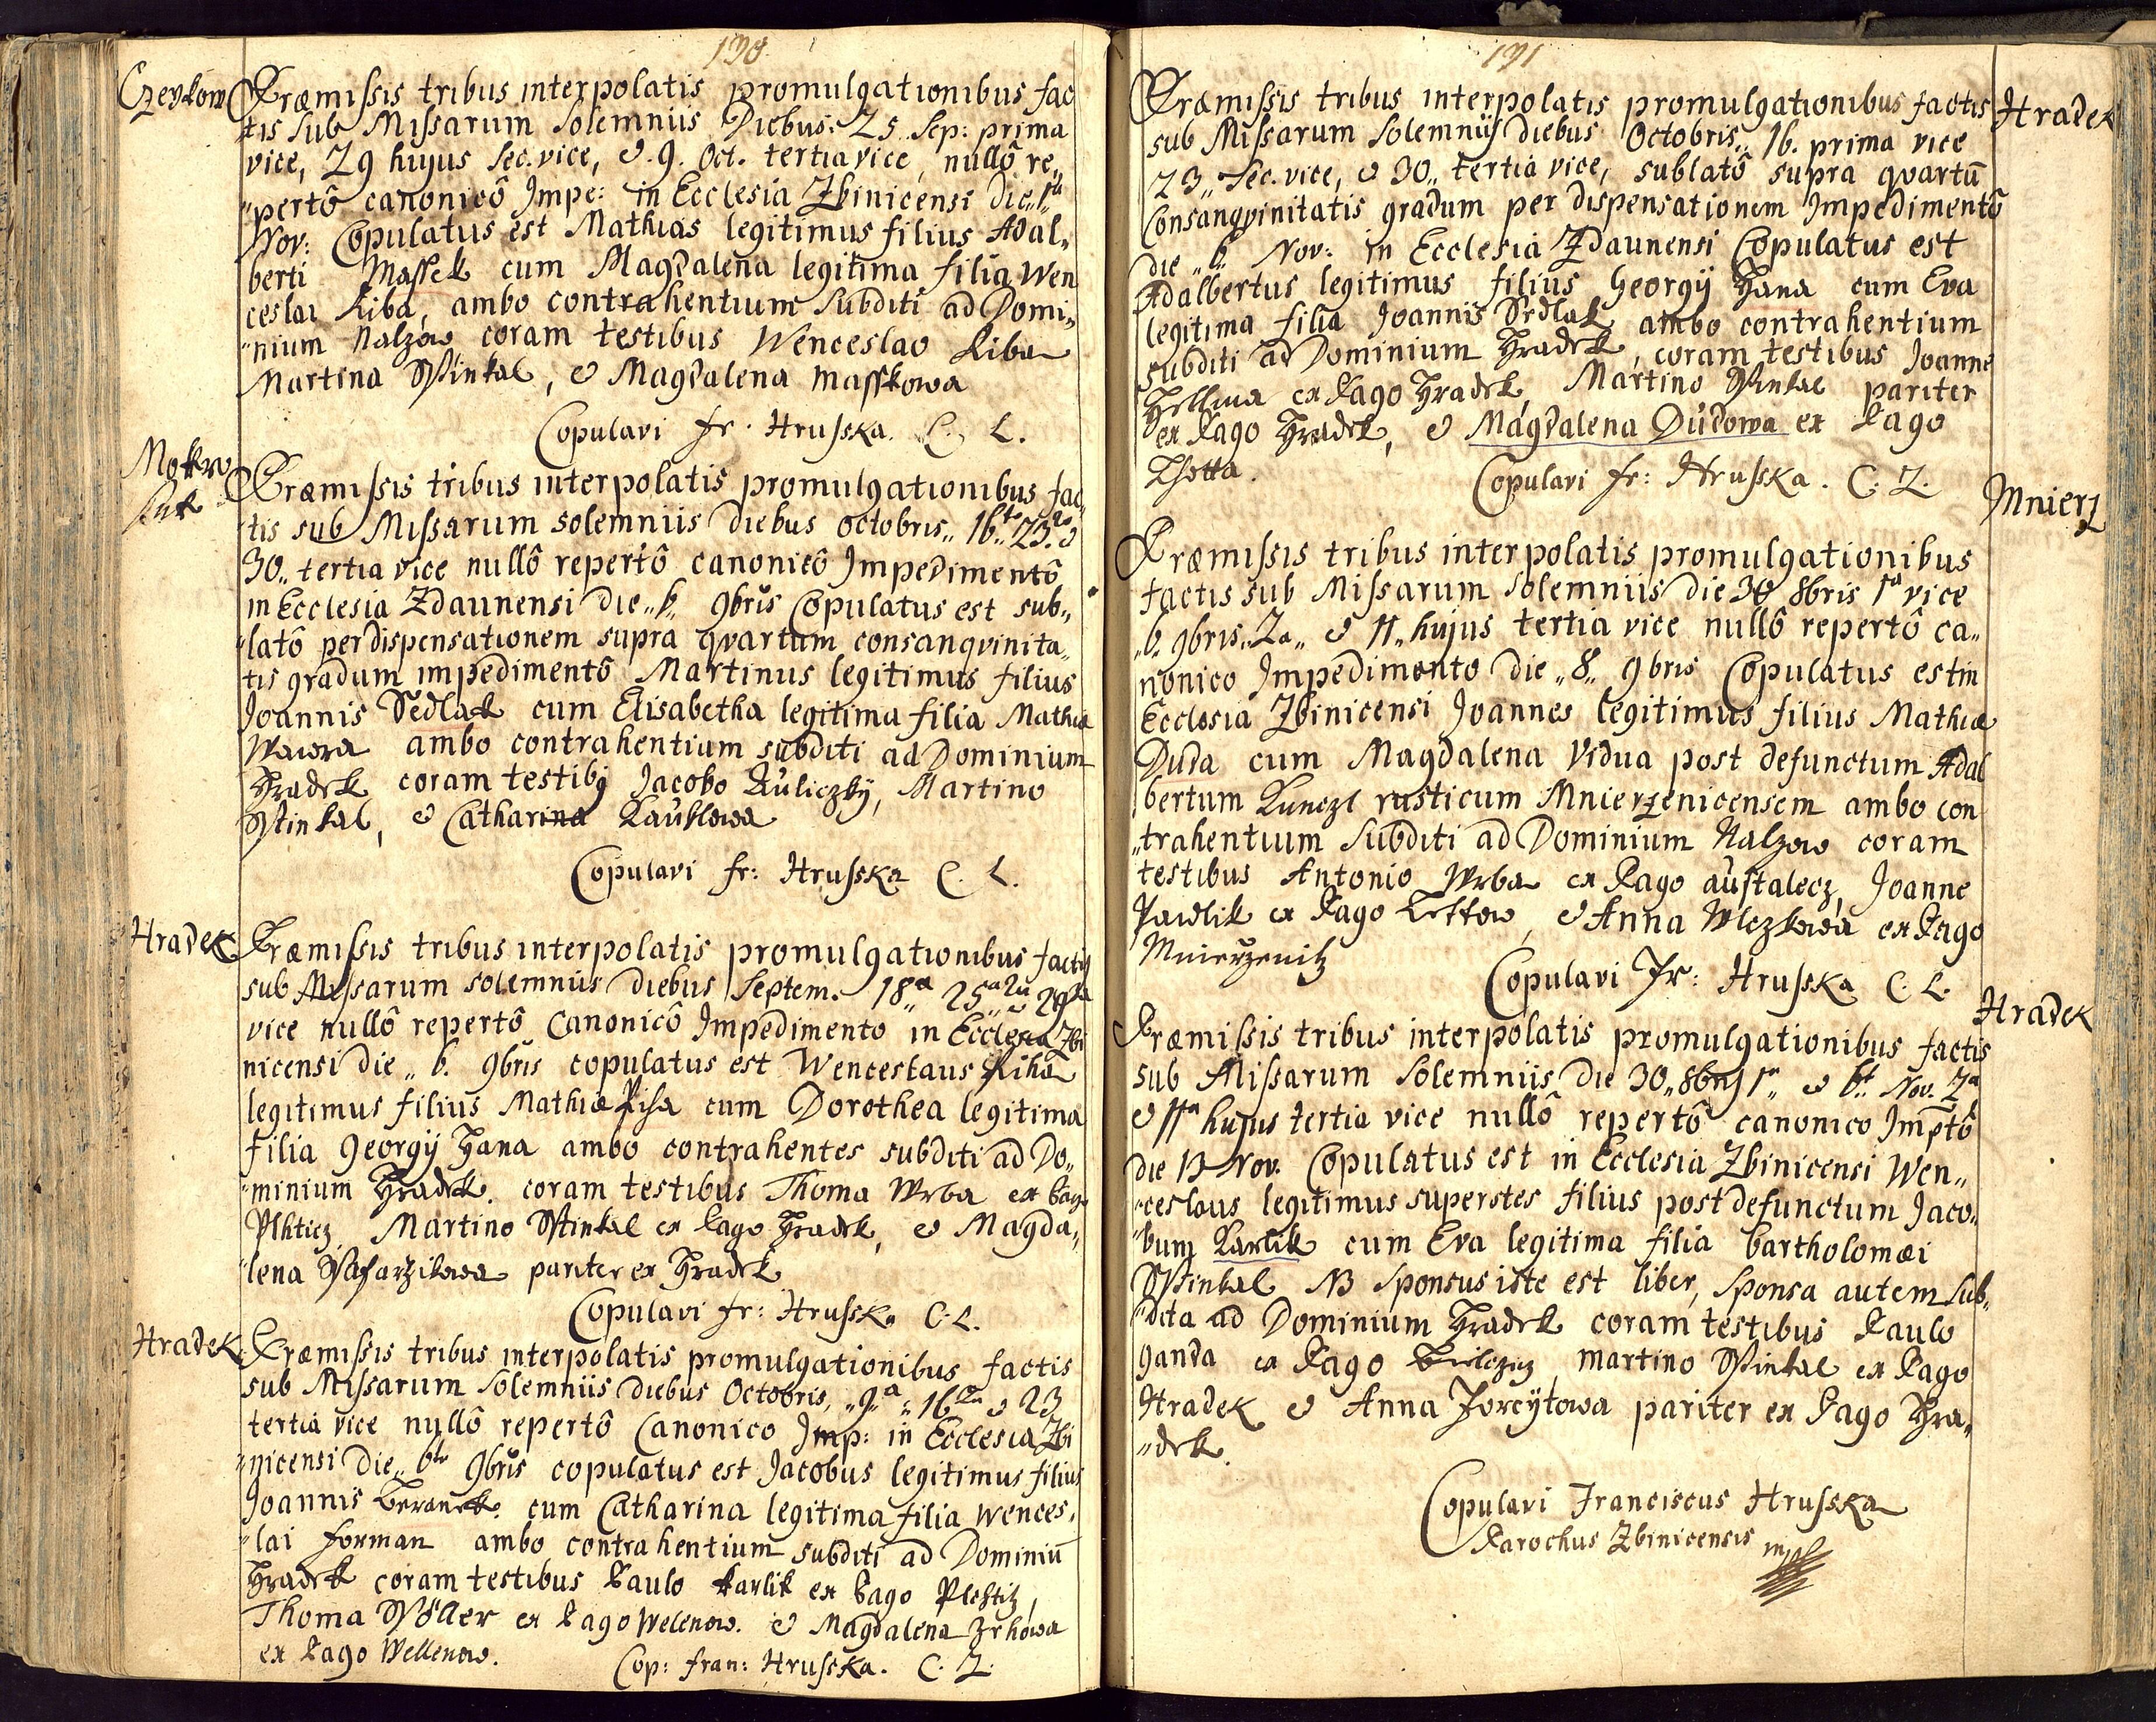 190
Czeykow
Præmissis tribus interpolatis promulgationibus fac
tis sub Missarum Solemniis Diebus: 25 Sep: prima
vice, 29 hujus Sec. vice, & 9. Oct. tertia vice, nullô re„
"pertô canonicô Impe: in Ecclesia Zbinicensi die „1ª
Nov: Copulatus est Mathias legitimus filius Adal„
berti Massek cum Magdalena legitima filia Wen
ceslai Riba, ambo contrahentium Subditi ad Domi„
"nium Nalzow coram testibus Wenceslao Riba
Martina Stinkal, & Magdalena Masskowa
Copulavi fr. Hrusska. C. L.
Mokro
Præmissis tribus interpolatis promulgationibus fac„
tis sub Missarum solemniis diebus octobris„ 16 „ 23. &
30„ tertia vice nullô repertô canonicô Impedimentô
in Ecclesia Zdaunensi die „6„ 9bris Copulatus est sub„
"latô per dispensationem supra qvartum consangvinita„
tis gradum impedimentô Martinus legitimus filius
Joannis Sedlak cum Elisabetha legitima filia Mathiæ
Wawra ambo contrahentium subditi ad Dominium
Hradek coram testibq Jacobo Kuliczky, Martino
Stinkal, & Catharina Kauklowa
Copulavi fr: Hrusska C. L.
Hradek
Præmissis tribus interpolatis promulgationibus factis
sub Missarum solemniis diebus Septem. 18ª 25ª 2ª & 29
vice nullô repertô Canonicô Impedimento in Ecclesia Zbi
nicensi die „6. 9bris copulatus est Wenceslaus Riha
legitimus filius Mathiæ Riha cum Dorothea legitima
filia Georgÿ Hana ambo contrahentes subditi ad Do„
"minium Hradek. coram testibus Thoma Wrba ex Pago
Plhticz, Martino Stinkal ex Pago Hradek, & Magda„
"lena Saffarzikowa pariter ex Hradek
Copulavi fr: Hrusska C. L.
Hradek
Præmissis tribus interpolatis promulgationibus factis
sub Missarum Solemniis diebus Octobris, „9„ª „16 & 23
tertia vice nullô repertô Canonico Imp: in Ecclesia Zbi
"nicensi die „6 9bris copulatus est Jacobus legitimus filius
Joannis Beranek. cum Catharina legitima filia Wences„
"lai Forman ambo contrahentium subditi ad Dominiū
Hradek coram testibus Paulo Karlik ex Pago Plchtitz,
Thoma Söller ex Pago Welenow. & Magdalena Zrhowa
ex Pago Wellenow.
Cop: fran: Hrusska. C. L.
191
Hradek
Præmissis tribus interpolatis promulgationibus factis
sub Missarum Solemniis diebus Octobris„ 16. prima vice
23„ Sec. vice, & 30„ tertia vice, sublatô supra qvartū
Consangvinitatis gradum per dispensationem Impedimentô
die „6 Nov: in Ecclesia Zdaunensi Copulatus est
Adalbertus legitimus filius Georgÿ Hana cum Eva
legitima filia Joannis Sedlak ambo contrahentium
subditi ad Dominium Hradek, coram testibus Joanne
ex Pago Hradek, Martino Stinkal pariter
ex Pago Hradek, & Magdalena Dudowa ex Pago
Lhotta.
Copulavi fr: Hrusska. C. L.
Mnierz
Præmissis tribus interpolatis promulgationibus
factis sub Missarum Solemniis die 30 8bris 1ª vice
„6. 9bris„ 2a„ & 11„ hujus tertia vice nullô repertô ca„
nonico Impedimento die „8„ 9bris Copulatus est in
Ecclesia Zbinicensi Joannes legitimus filius Mathiæ
Duda cum Magdalena Vidua post defunctum Adal
bertum Kunczl rusticum Mnierzenicensem ambo con
"trahentium Subditi ad Dominium Nalzow coram
testibus Antonio Wrba ex Pago austalecz, Joanne
Pawlik ex Pago Lettow, & Anna Wlczkowa ex Pago
Mnierzenitz
Copulavi Fr: Hrusska C. L.
Hradek
Præmissis tribus interpolatis promulgationibus factis
sub Missarum Solemniis die 30„ 8bris 1ª„ & 6„ Nov. 2ª
& 11ª hujus tertia vice nullô repertô canonico Imp̄tô
die 13 Nov. Copulatus est in Ecclesia Zbinicensi Wen„
"ceslaus legitimus superstes filius post defunctum Jaco„
"bum Karlik cum Eva legitima filia Bartholomæi
Stinkal NB Sponsus iste est liber, Sponsa autem Sub„
"dita ad Dominium Hradek coram testibus Paulo
Ganda ex Pago martino Stinkal ex Pago
Hradek & Anna Forcÿtowa pariter ex Pago Hra„
"dek.
Copulavi Franciscus Hrusska
Parochus Zbinicensis mpl